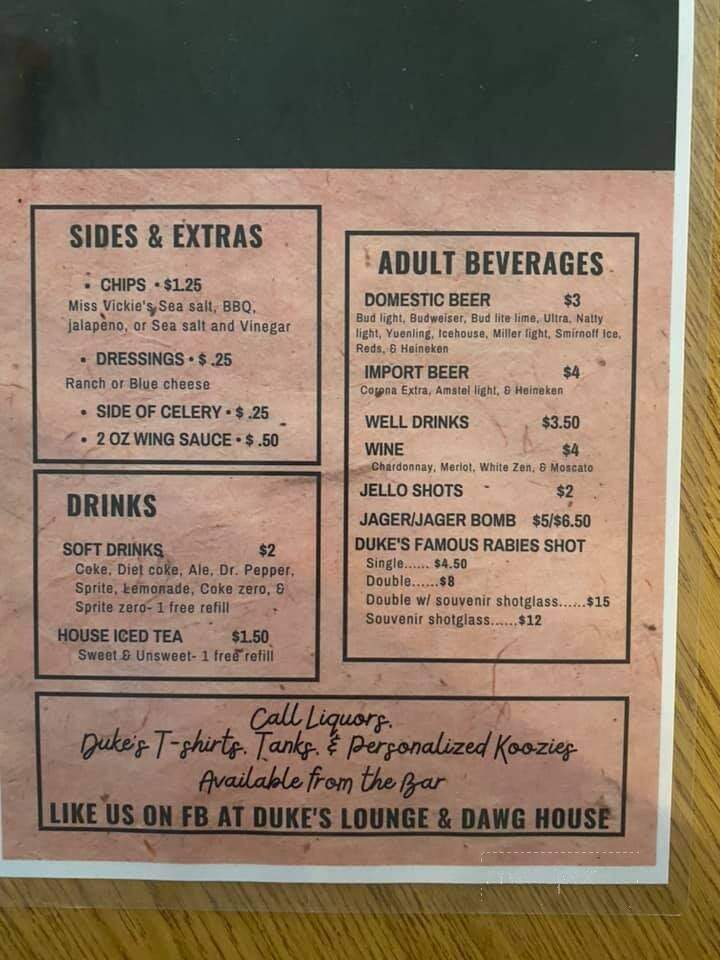 SIDES & EXTRAS
• CHIPS • $1.25
Miss Vickie's Sea salt, BBQ,
jalapeno, or Sea salt and Vinegar
• DRESSINGS • $ .25
Ranch or Blue cheese
• SIDE OF CELERY • $ .25
• 2 OZ WING SAUCE • $ .50
DRINKS
SOFT DRINKS $2
Coke, Diet coke, Ale, Dr. Pepper,
Sprite, Lemonade, Coke zero, &
Sprite zero- 1 free refill
HOUSE ICED TEA $1.50
Sweet & Unsweet- 1 free refill
ADULT BEVERAGES
DOMESTIC BEER $3
Bud light, Budweiser, Bud lite lime, Ultra, Natty
light, Yuenling, Icehouse, Miller light, Smirnoff Ice,
Reds, & Heineken
IMPORT BEER $4
Corona Extra, Amstel light, & Heineken
WELL DRINKS $3.50
WINE $4
Chardonnay, Merlot, White Zen, & Moscato
JELLO SHOTS $2
JAGER/JAGER BOMB $5/$6.50
DUKE'S FAMOUS RABIES SHOT
Single...... $4.50
Double......$8
Double w/ souvenir shotglass......$15
Souvenir shotglass......$12
Call Liquors.
Duke's T-shirts, Tanks, & Personalized Koozies
Available from the Bar
LIKE US ON FB AT DUKE'S LOUNGE & DAWG HOUSE